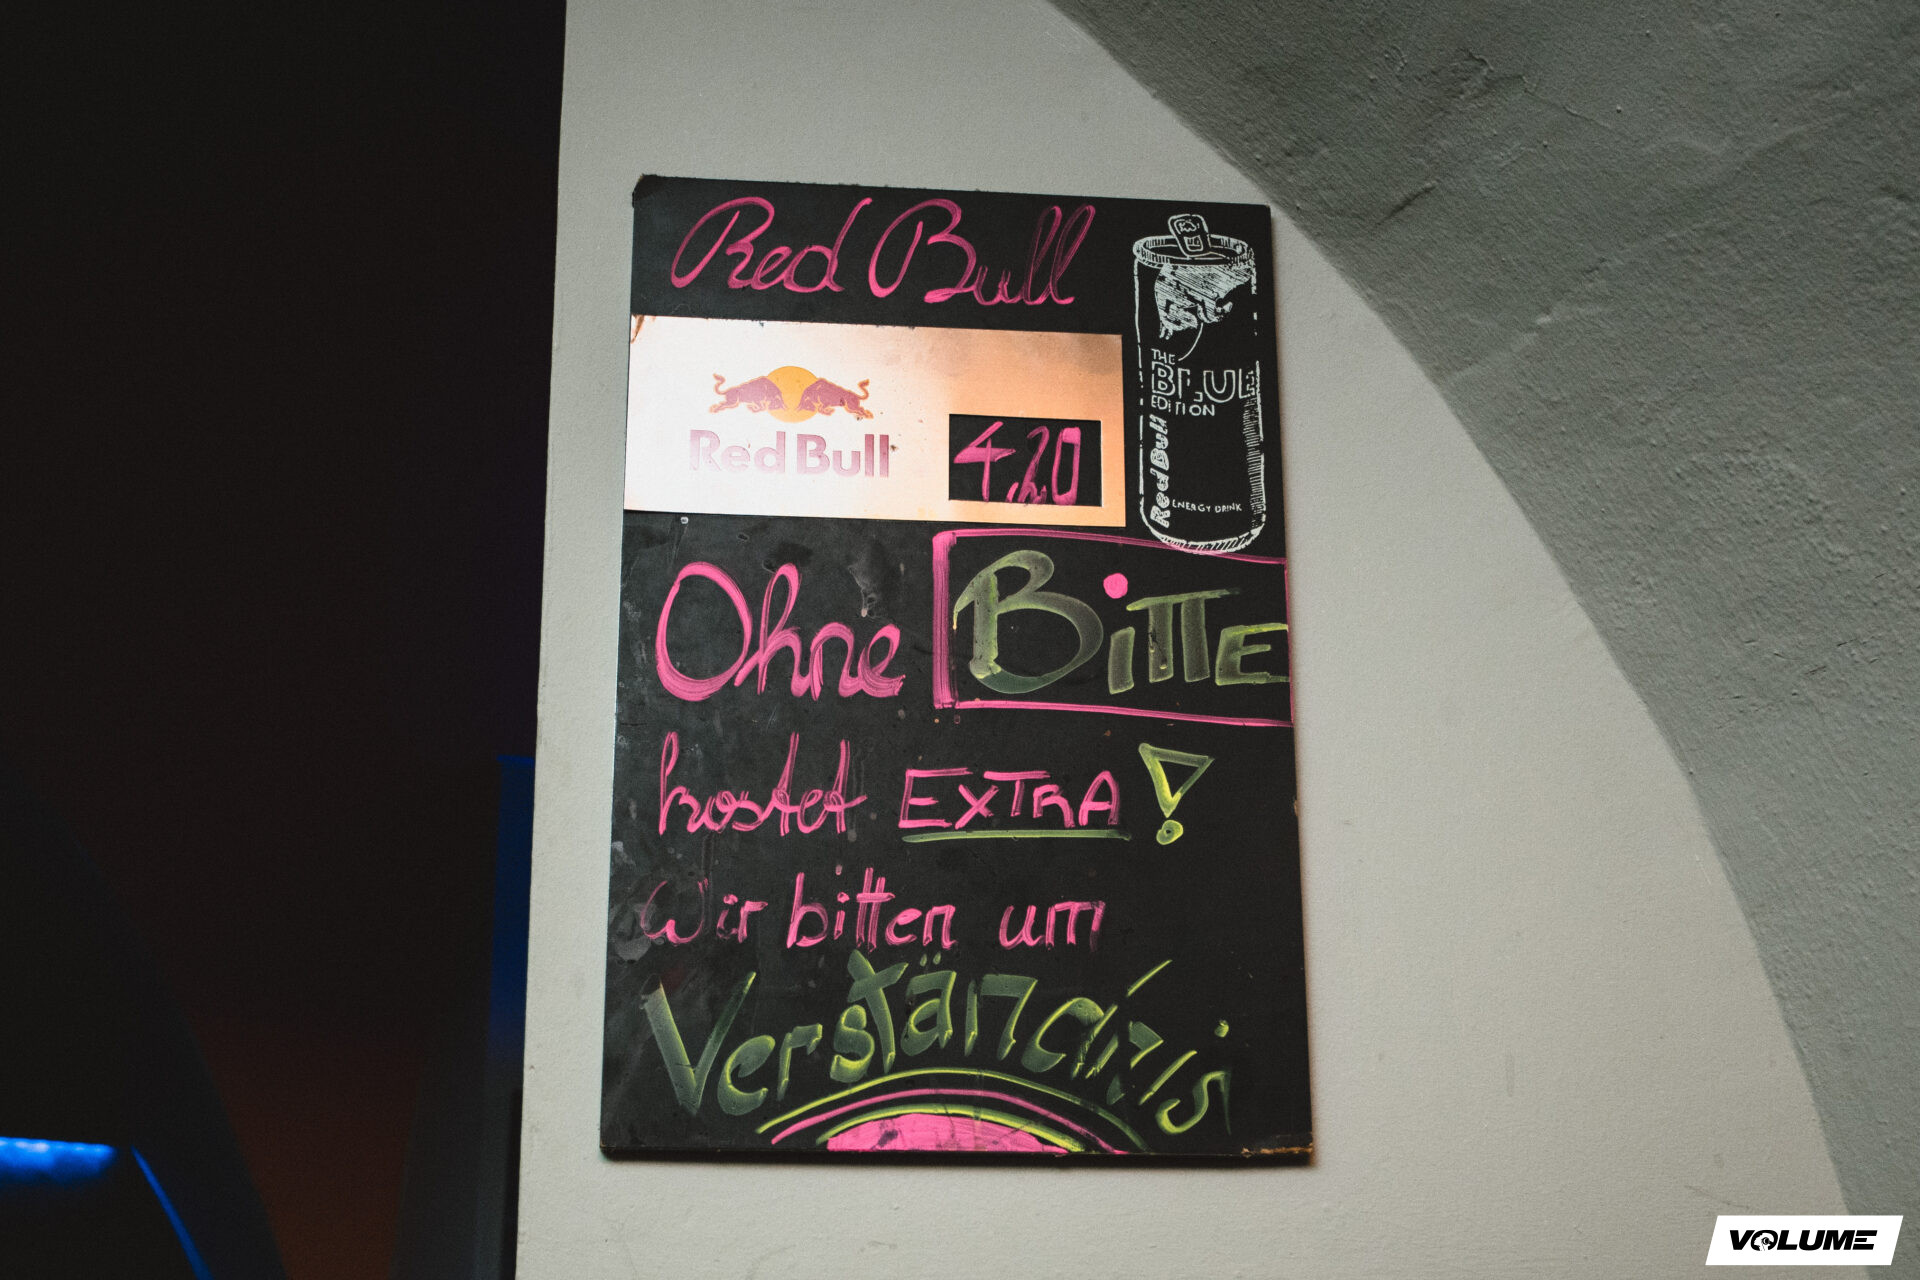 Red Bull
Red Bull
4,20
THE
BLUE
EDITION
Red Bull
ENERGY DRINK
Ohne BITTE
kostet EXTRA!
Wir bitten um
Verständnis
VOLUME